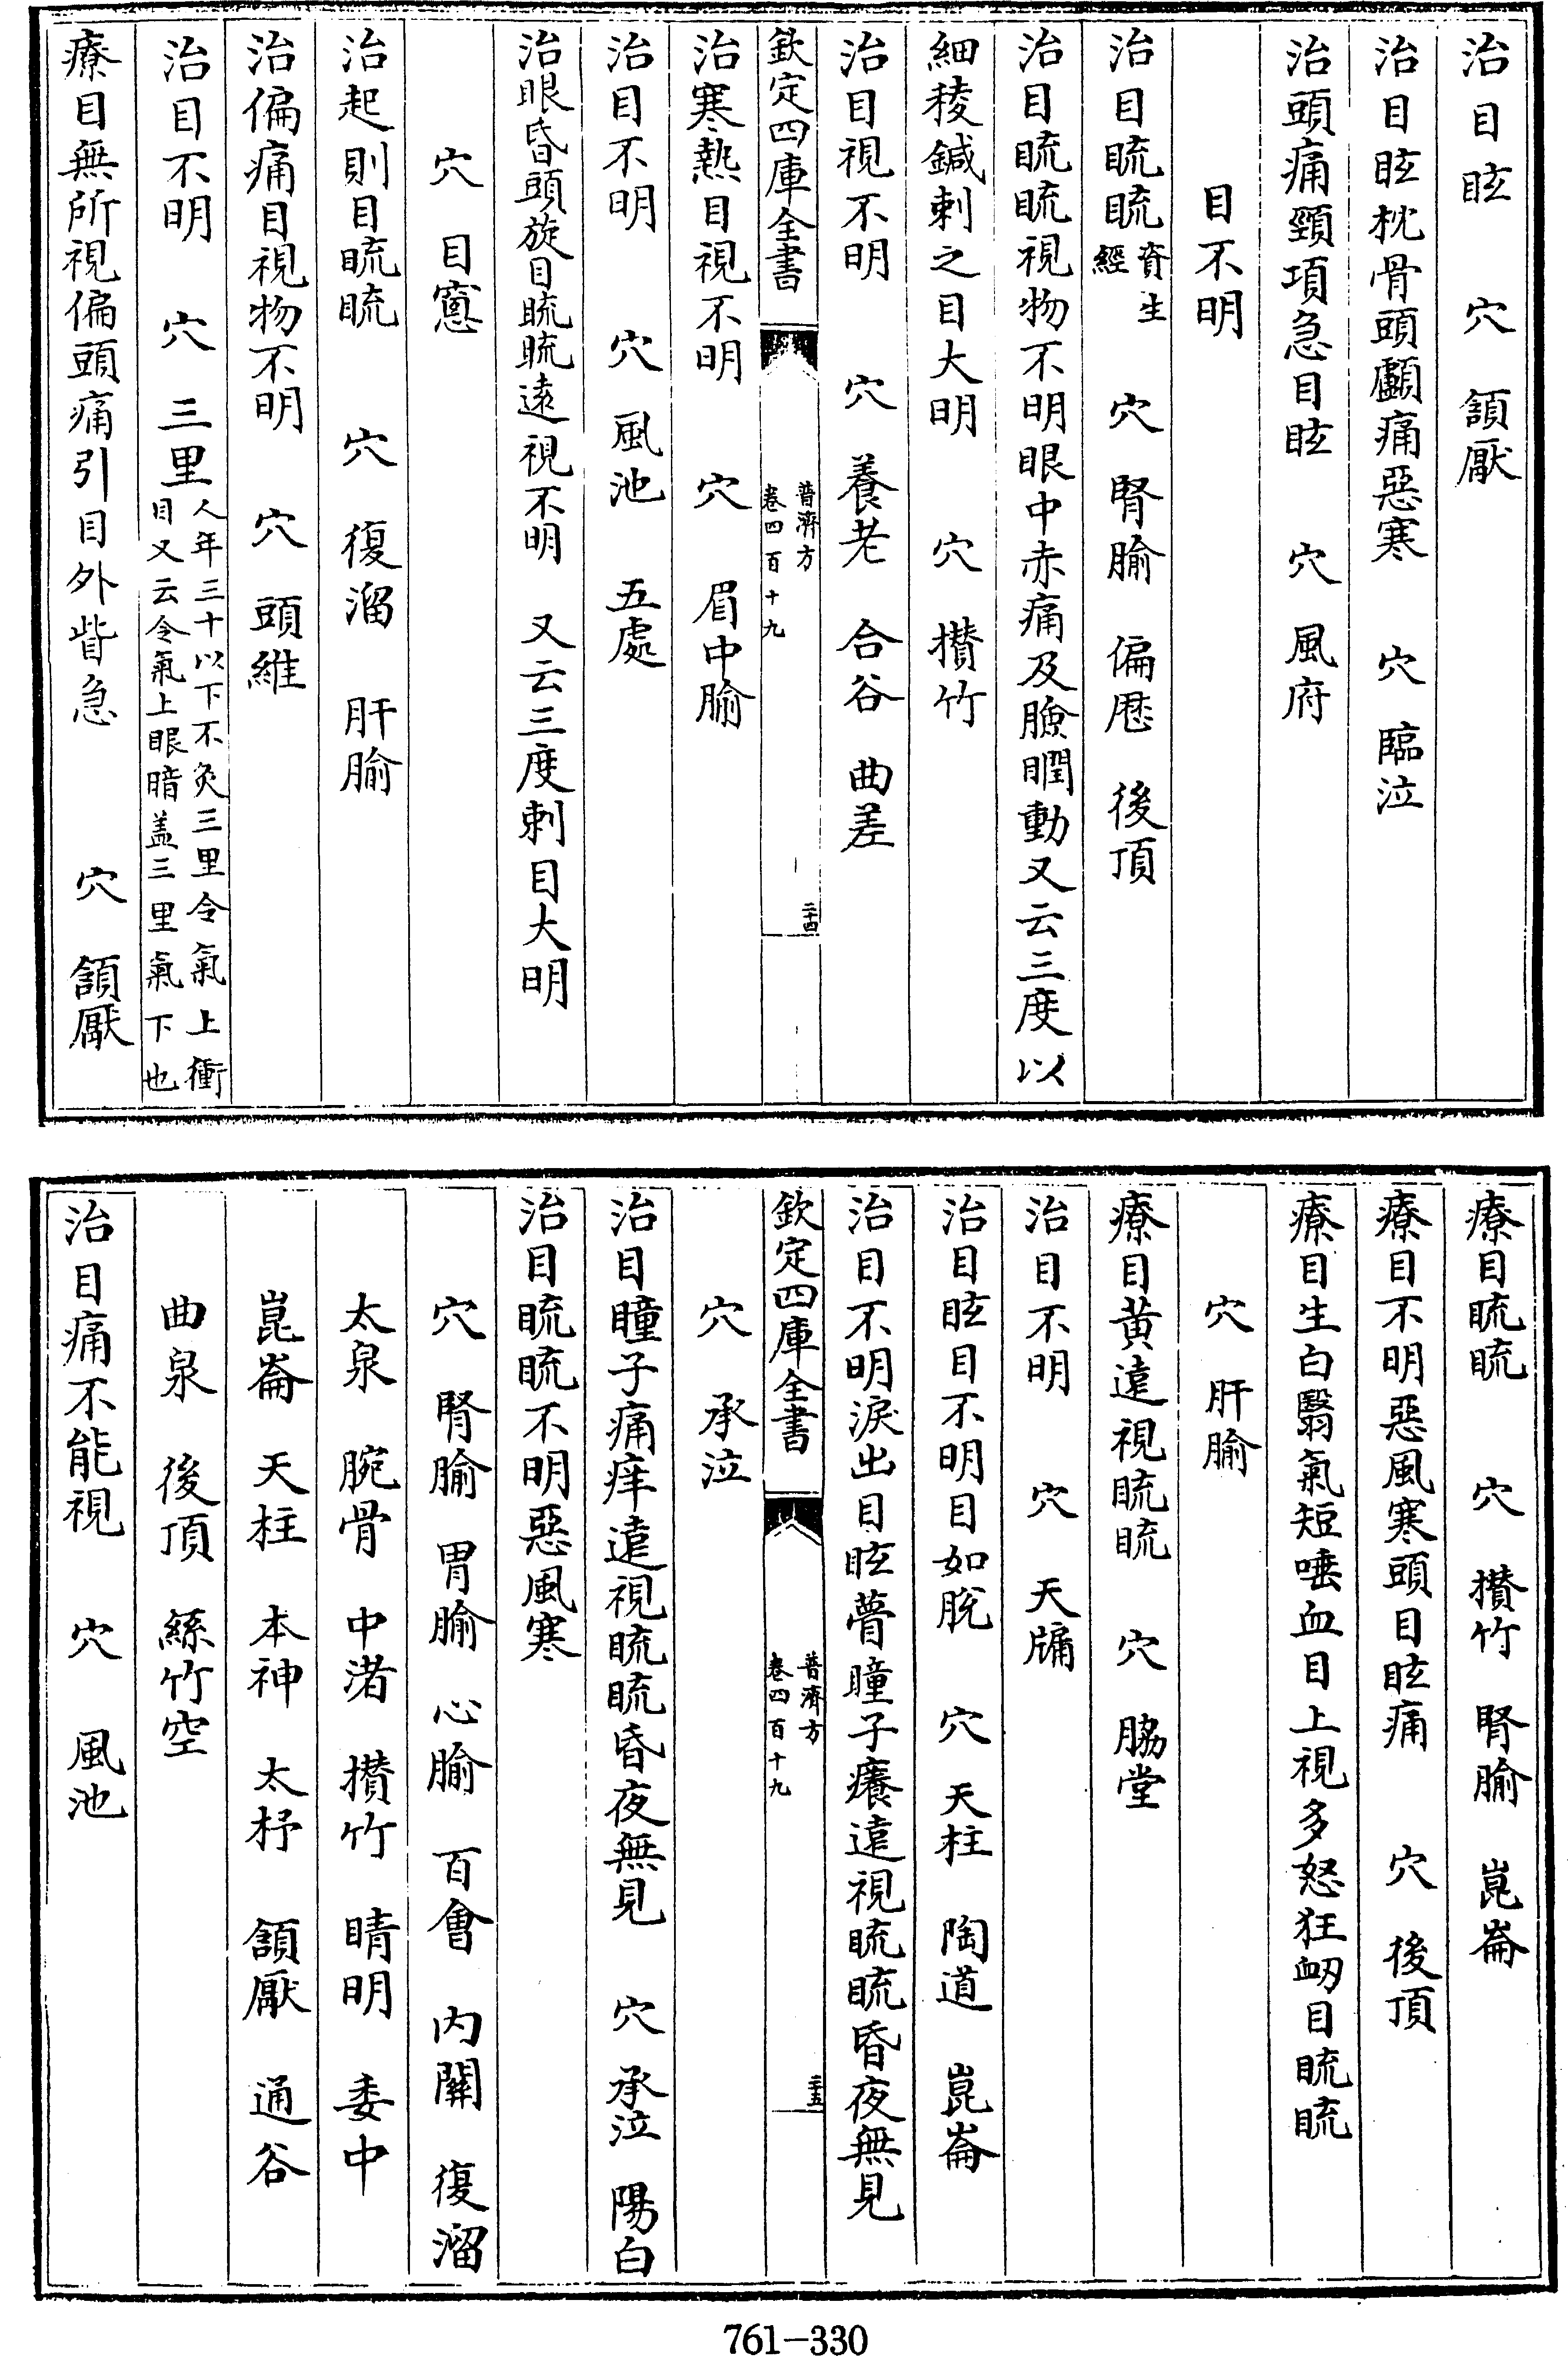 治目眩　穴　頷厭
治目眩枕骨頭顱痛惡寒　穴　臨泣
治頭痛頸項急目眩　穴　風府
目不明
治目䀮䀮資生經　穴　腎腧　偏厯　後頂
治目䀮䀮視物不明眼中赤痛及臉瞤動又云三度以
細稜鍼刺之目大明　穴　攢竹
治目視不明　穴　養老　合谷　曲差
欽定四庫全書　普濟方卷四百十九　二十四
治寒熱目視不明　穴　眉中腧
治目不明　穴　風池　五處
治眼昏頭旋目䀮䀮遠視不明　又云三度刺目大明
穴　目窻
治起則目䀮䀮　穴　復溜　肝腧
治偏痛目視物不明　穴　頭維
治目不明　穴　三里人年三十以下不灸三里令氣上衝目又云令氣上眼暗盖三里氣下也
療目無所視偏頭痛引目外眥急　穴　頷厭
療目䀮䀮　穴　攢竹　腎腧　崑崙
療目不明惡風寒頭目眩痛　穴　後頂
療目生白翳氣短唾血目上視多怒狂衂目䀮䀮
穴　肝腧
療目黄遠視䀮䀮　穴　脇堂
治目不明　穴　天牖
治目眩目不明目如脫　穴　天柱　陶道　崑崙
治目不明淚出目眩瞢瞳子癢遠視䀮䀮昏夜無見
欽定四庫全書　普濟方卷四百十九　二十五
穴　承泣
治目瞳子痛痒遠視䀮䀮昏夜無見　穴　承泣　陽白
治目䀮䀮不明惡風寒
穴　腎腧　胃腧　心腧　百會　内關　復溜
太泉　腕骨　中渚　攢竹　睛明　委中
崑崙　天柱　本神　太杼　頷厭　通谷
曲泉　後頂　絲竹空
治目痛不能視　穴　風池
761-330